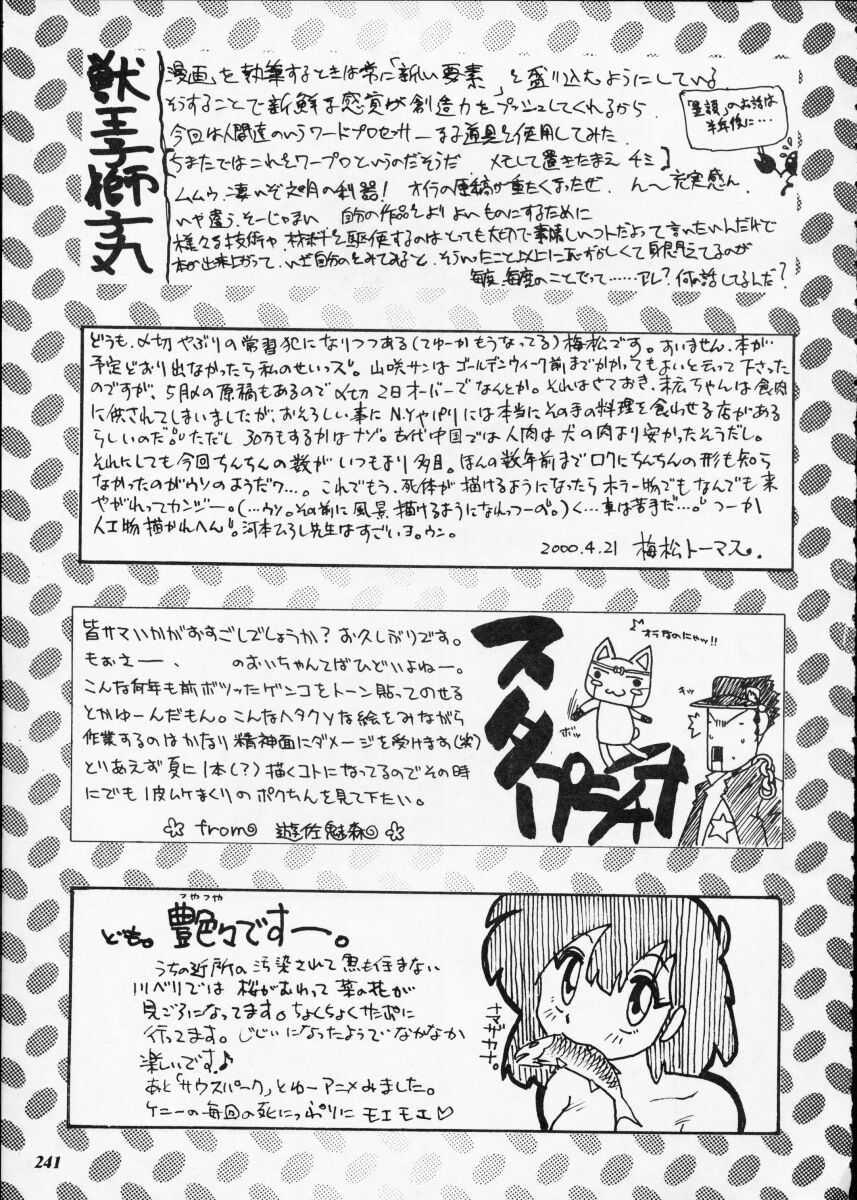 獣王子獅子丸
漫画を執筆するときは常に「新しい要素」を盛り込むようにしている
そうすることで新鮮な感覚が創造力をプッシュしてくれるから。
今回は人間達のいうワードプロセッサーなる道具を使用してみた
[ちまたではこれをワープロというのだそうだ メモして置きたまえ チミ]
ムムウ、凄いぞ文明の利器! オイラの原稿が重たくなったぜ ん〜充実感ん。
いや違う、そーじゃない 自分の作品をよりよいものにするために
様々な技術や材料を駆使するのはとっても大切で素晴しいコトだよって言いたいんだけど
本が出来上がって、いざ自分のをみてみると、そういったこと以上に恥ずかしくて
毎度毎度のことでって……アレ?何の話してるんだ?
のお話は
半年後に…
どうも、〆切やぶりの常習犯になりつつある(てゆーかもうなってる)梅松です。すいません、本が…
予定どおり出なかったら私のせいっス。山咲サンはゴールデンウィーク前までかかってもよいと云って下さった
のですが、5月〆の原稿もあるので〆切2日オーバーでなんとか。それはさておき、ちゃんは食肉
に供されてしまいましたが、おそろしい事にN.Yやパリには本当にそのままの料理を食わせる店がある
らしいのだ。ただし30万もするかはナゾ。古代中国では人肉は犬の肉より安かったそうだし。
それにしても今回ちんちんの数がいつもより多目。ほんの数年前までロクにちんちんの形も知ら
なかったのがウソのようだワ…。これでもう、死体が描けるようになったらホラー物でもなんでも来
やがれってカンジー。(…ウソ。その前に風景描けるようになれっつーの。)く…車は苦手だ…。つーか
人工物描かれへん。河本ひろし先生はすごいヨ。ウン。
2000.4.21 梅松トーマス。
皆サマいかがおすごしでしょうか?お久しぶりです。
もぉえー、 のおいちゃんてばひどいよねー。
こんな何年も前ボツったゲンコをトーン貼ってのせる
とかゆーんだもん。こんなヘタクソな絵をみながら
作業するのはかなり精神面にダメージを受けます(笑)
とりあえず夏に1本(?)描くコトになってるのでその時
にでも1皮ムケまくりのボクちんを見て下さい。
☆from 遊佐魅森 ☆
オラなのにゃッ!!
スタープラチナ
つやつや
ども。艶々ですー。
うちの近所の汚染されて魚も住まない
川べりでは 桜がおわって菜の花が
見ごろになってます。ちょくちょくサンポに
行ってます。じじぃになったようでなかなか
楽しいです♪
あと「サウスパーク」とゆーアニメみました。
ケニーの毎回の死にっぷりにモエモエ♡
ナマザカナ。
241